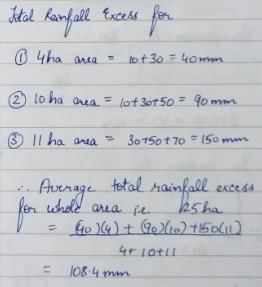 Total Rainfall Excess for
① 4ha area = 10+30 = 40mm
② 10 ha area = 10+30+50 = 90 mm
③ 11 ha area = 30+50+70 = 150mm
∴ Average total rainfall excess
for whole area i.e. 25ha
= (40)(4) + (90)(10) + 150(11)
4+10+11
= 108.4 mm